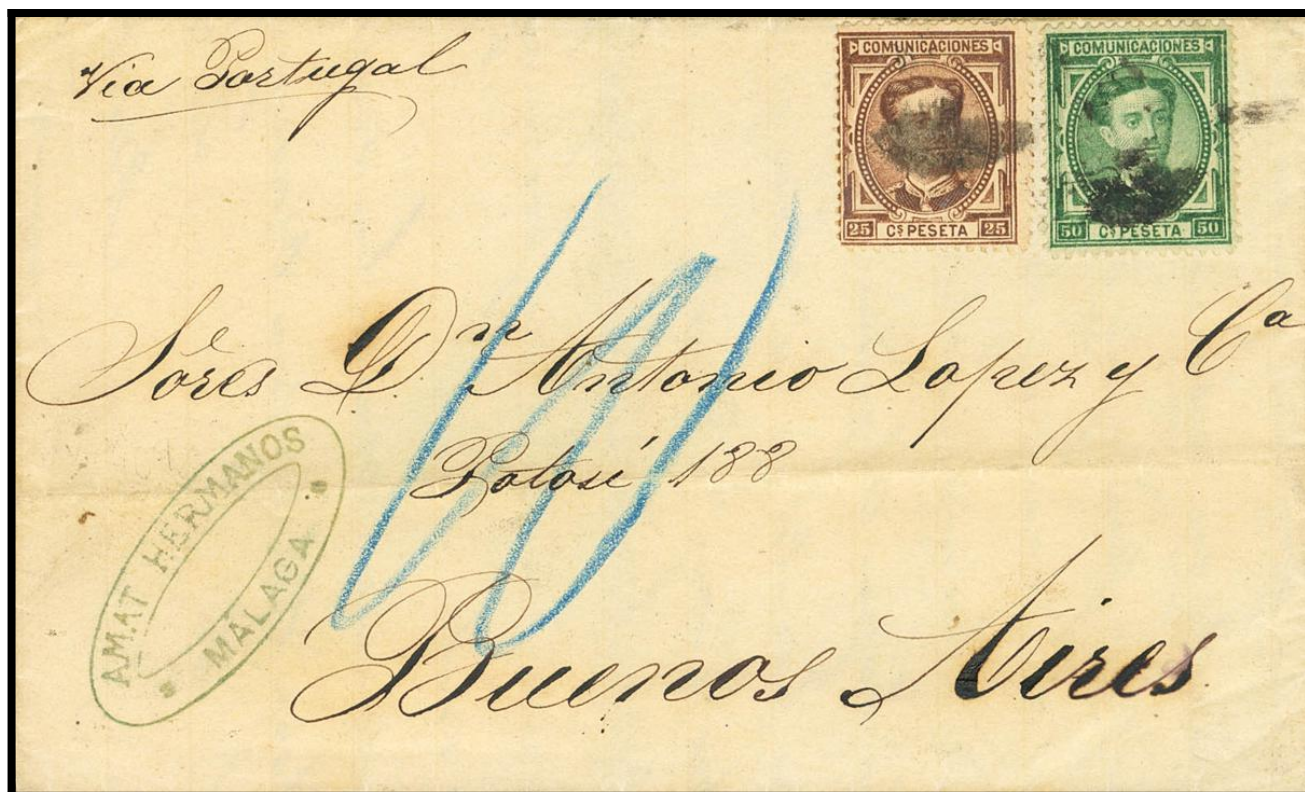 Via Portugal
COMUNICACIONES
25 Cs PESETA 25
COMUNICACIONES
50 Cs PESETA 50
Sores Dn Antonio Lopez y Ca
Potosí 188
Buenos Aires
AMAT HERMANOS
MALAGA